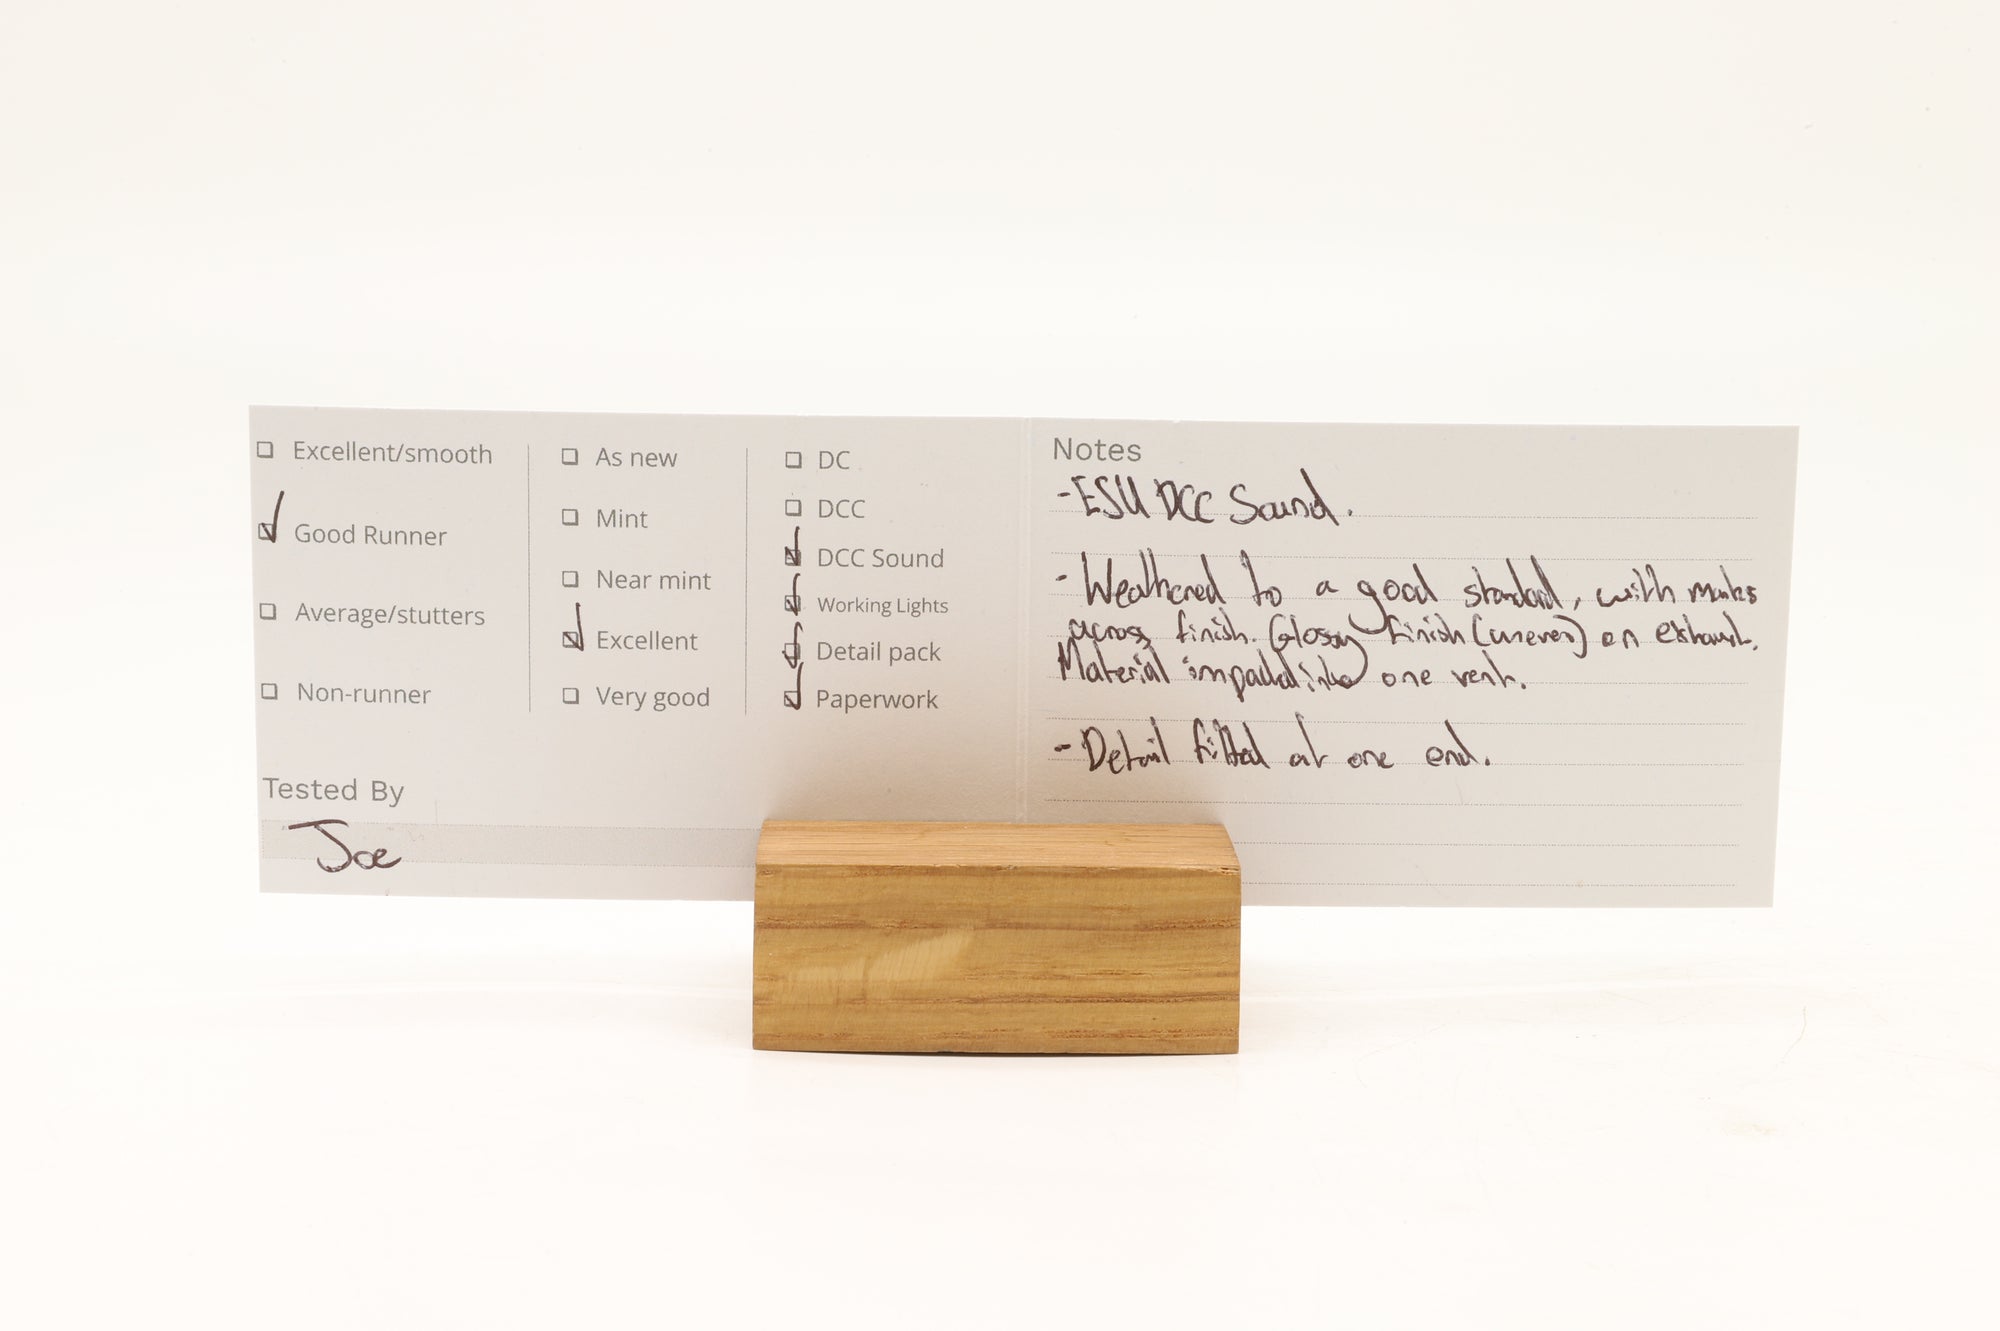 Excellent/smooth
Good Runner
Average/stutters
Non-runner
Tested By
Joe
As new
Mint
Near mint
Excellent
Very good
DC
DCC
DCC Sound
Working Lights
Detail pack
Paperwork
Notes
- ESU DCC Sound.
- Weathered to a good standard, with marks
across finish. Glossy finish (uneven) on exhaust.
Material impacted into one vent.
- Detail fitted at one end.